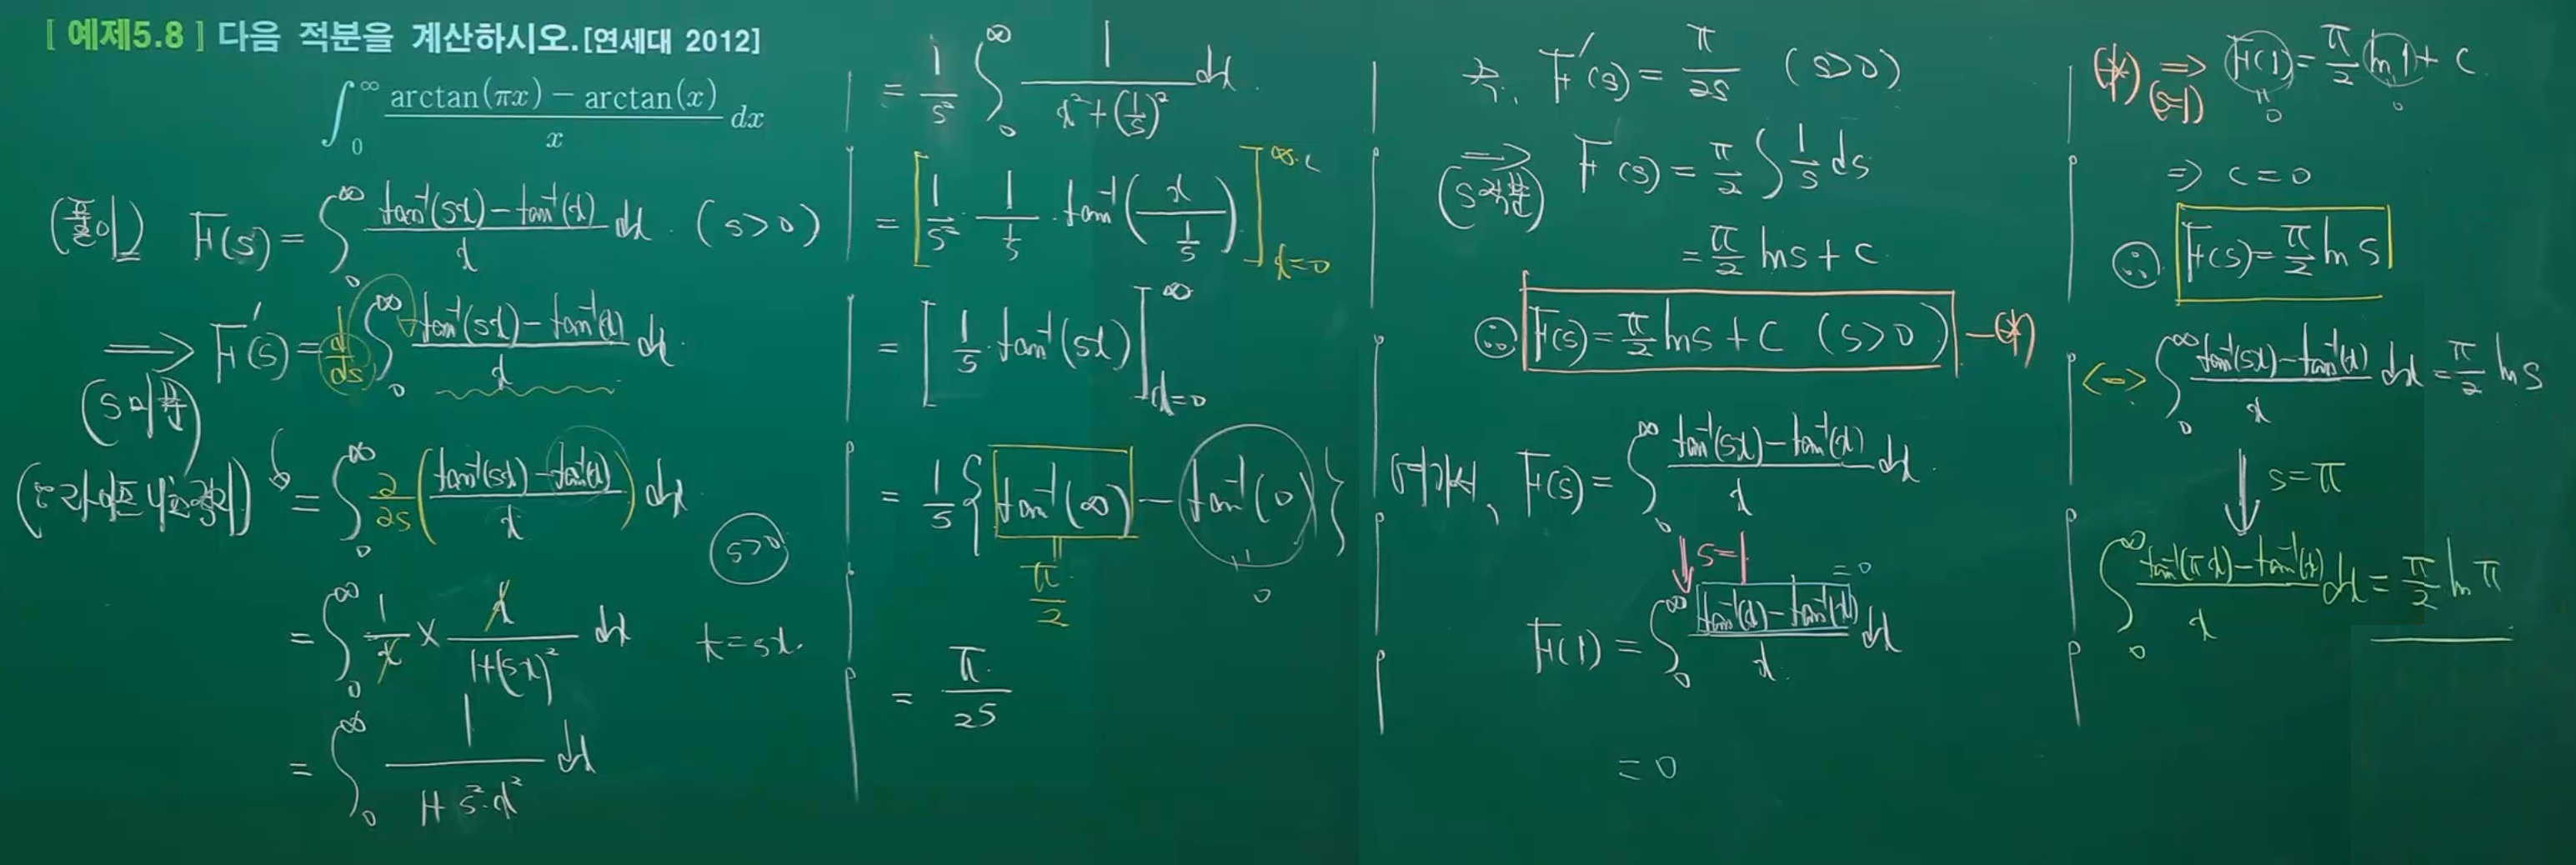 [ 예제5.8 ] 다음 적분을 계산하시오.[연세대 2012]
∫₀^∞ (arctan(πx) − arctan(x))/x dx
(풀이) F(s) = ∫₀^∞ (tan⁻¹(sx) − tan⁻¹(x))/x dx. (s>0)
⟹ (s미분) F′(s) = d/ds ∫₀^∞ (tan⁻¹(sx) − tan⁻¹(x))/x dx.
(라이프니츠 ) = ∫₀^∞ ∂/∂s ((tan⁻¹(sx) − tan⁻¹(x))/x) dx
s>0
= ∫₀^∞ 1/x × x/(1+(sx)²) dx t=sx.
= ∫₀^∞ 1/(1+s²·x²) dx
= 1/s² ∫₀^∞ 1/(x²+(1/s)²) dx.
= [1/s² · 1/(1/s) · tan⁻¹(x/(1/s))]_{x=0}^{∞}
= [1/s · tan⁻¹(sx)]_{x=0}^{∞}
= 1/s {tan⁻¹(∞) − tan⁻¹(0)}
π/2 0
= π/2s
즉, F′(s) = π/2s (s>0)
⟹ (s적분) F(s) = π/2 ∫ 1/s ds
= π/2 ln s + C
∴ F(s) = π/2 ln s + C (s>0) −(*)
여기서, F(s) = ∫₀^∞ (tan⁻¹(sx) − tan⁻¹(x))/x dx.
↓ s=1
F(1) = ∫₀^∞ (tan⁻¹(x) − tan⁻¹(x))/x dx =0
= 0
(*) ⟹ (s=1) F(1) = π/2 ln 1 + C
0 0
⇒ C = 0
∴ F(s) = π/2 ln s
⟺ ∫₀^∞ (tan⁻¹(sx) − tan⁻¹(x))/x dx = π/2 ln s
↓ s=π
∫₀^∞ (tan⁻¹(πx) − tan⁻¹(x))/x dx = π/2 ln π